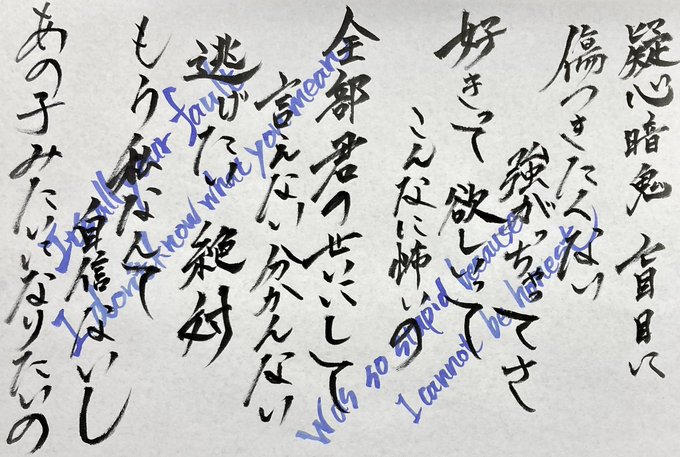 疑心暗鬼 盲目に
傷つきたくない
強がっちゃってさ
好きって欲しがって
こんなに怖いの
全部君のせいにして
言えない分かんない
逃げたい 絶対
もう私なんて
自信ないし
あの子みたいになりたいの
It's all your fault
I don't know what you mean
Was so stupid because
I cannot be honest